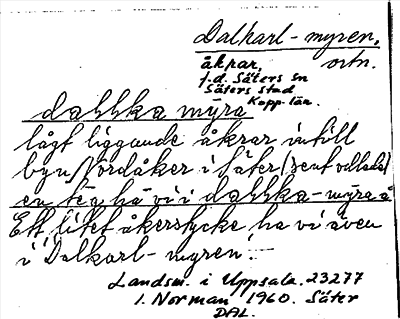 Dalkarl-myren,
åkrar, ortn.
f.d. Säters sn
Säters stad
Kopp. län.
dahhka mýra
lågt liggande åkrar intill
byn Nordåker i Säter (sent odlade)
en teg ha vi i dahhka-mýra å
Ett litet åkerstycke ha vi även
i "Dalkarl-myren".
Landsm. i Uppsala. 23277
I. Norman 1960. Säter
DAL.